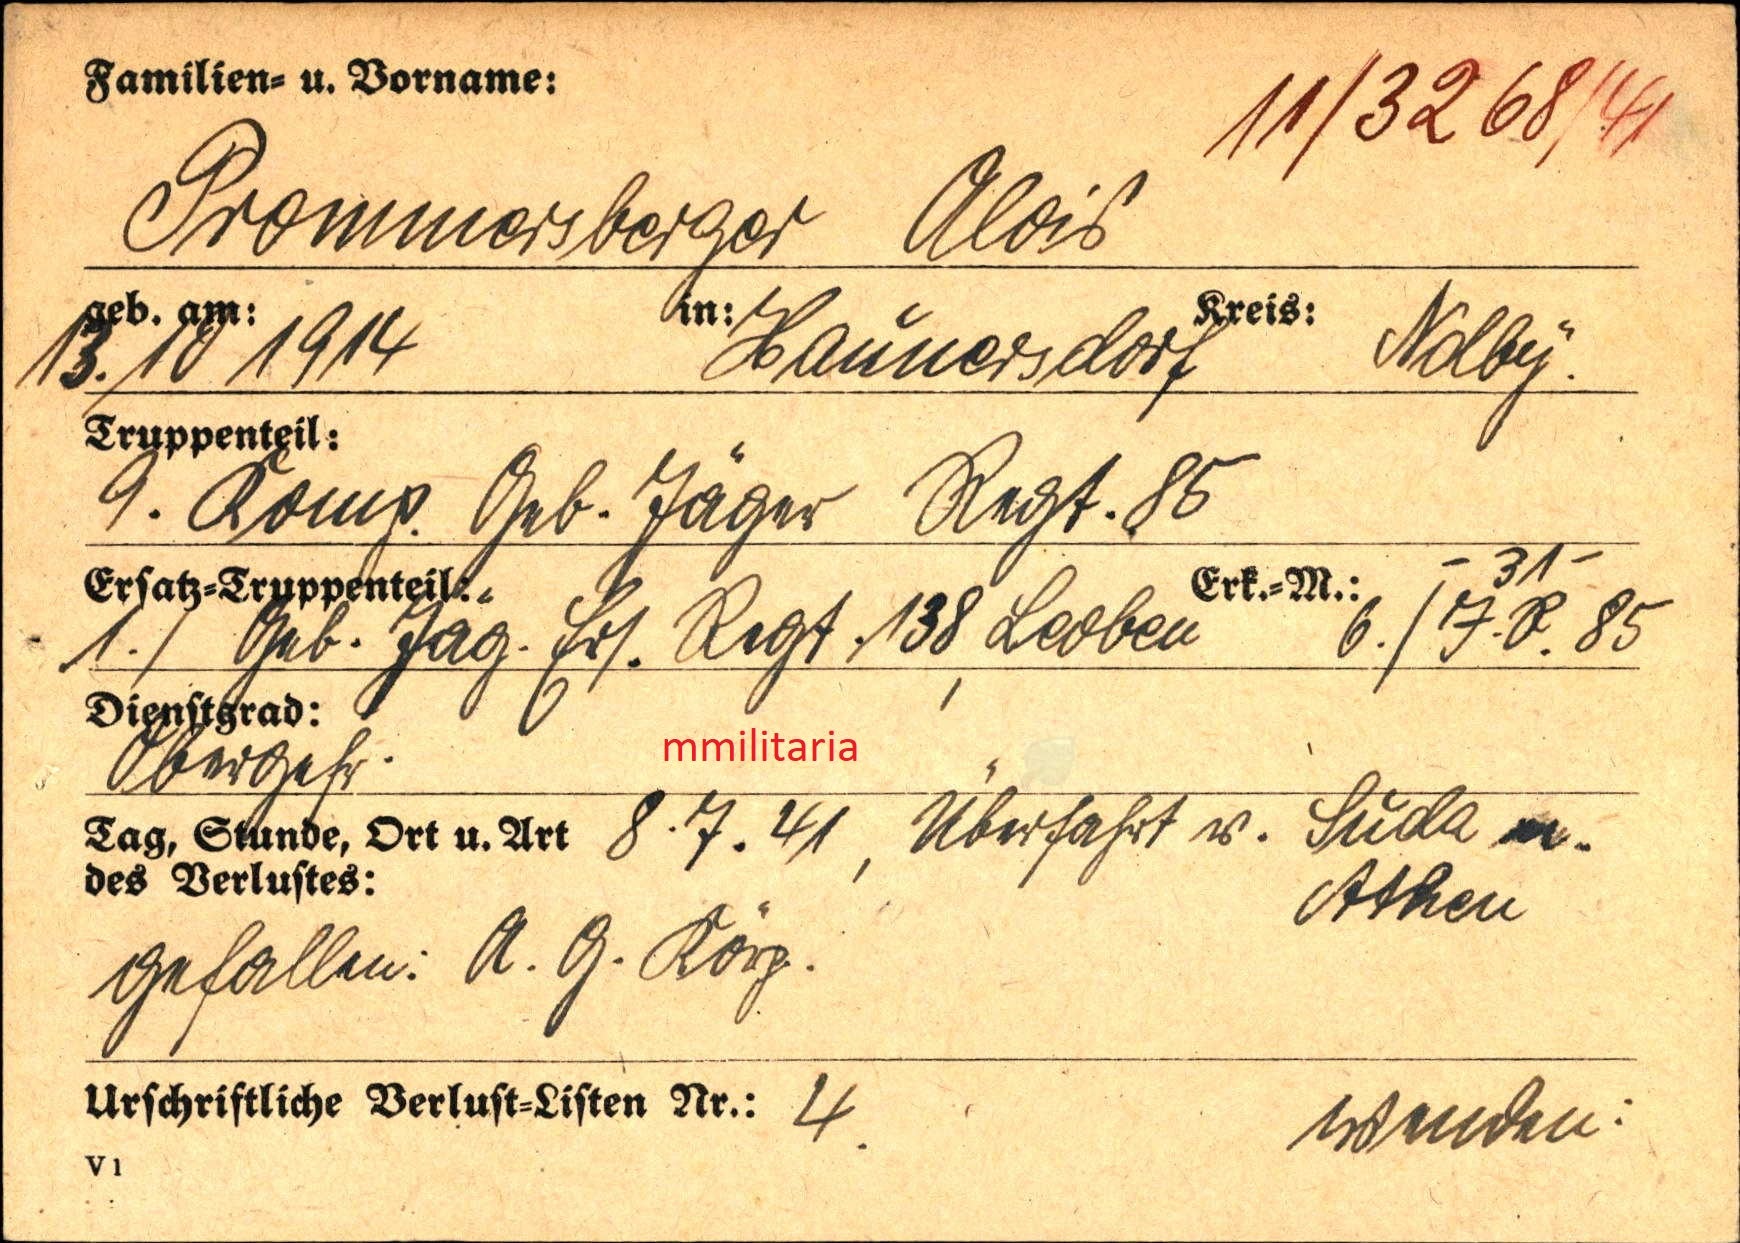 Familien- u. Vorname:
11/3268/41
Prommersberger Alois
geb. am: in: Kreis:
13. 10 1914 Haunersdorf Ndby.
Truppenteil:
9. Komp. Geb. Jäger Regt. 85
Ersatz-Truppenteil: Erk.-M.: - 31 -
1./ Geb. Jag. Ers. Regt. 138, Leoben 6./ J. R. 85
Dienstgrad:
Obergefr.
mmilitaria
Tag, Stunde, Ort u. Art 8.7.41, Überfahrt v. Suda n.
des Verlustes: Athen
gefallen: A. G. Körp.
Urschriftliche Verlust-Listen Nr.: 4. wenden:
V 1